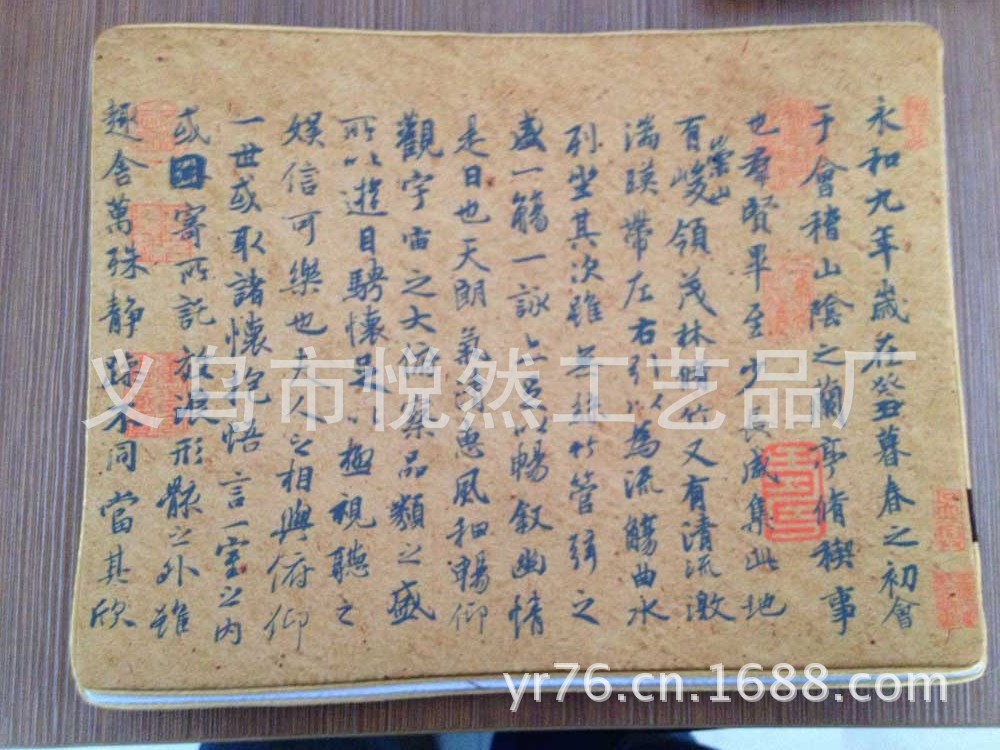 永和九年歲在癸丑暮春之初會
于會稽山陰之蘭亭脩稧事
也羣賢畢至少長咸集此地
有崇山峻領茂林脩竹又有清流激
湍暎帶左右引以為流觴曲水
列坐其次雖無絲竹管弦之
盛一觴一詠亦足以暢敘幽情
是日也天朗氣清惠風和暢仰
觀宇宙之大俯察品類之盛
所以遊目騁懷足以極視聽之
娛信可樂也夫人之相與俯仰
一世或取諸懷抱悟言一室之內
或因寄所託放浪形骸之外雖
趣舍萬殊靜躁不同當其欣
义乌市悦然工艺品厂
yr76.cn.1688.com